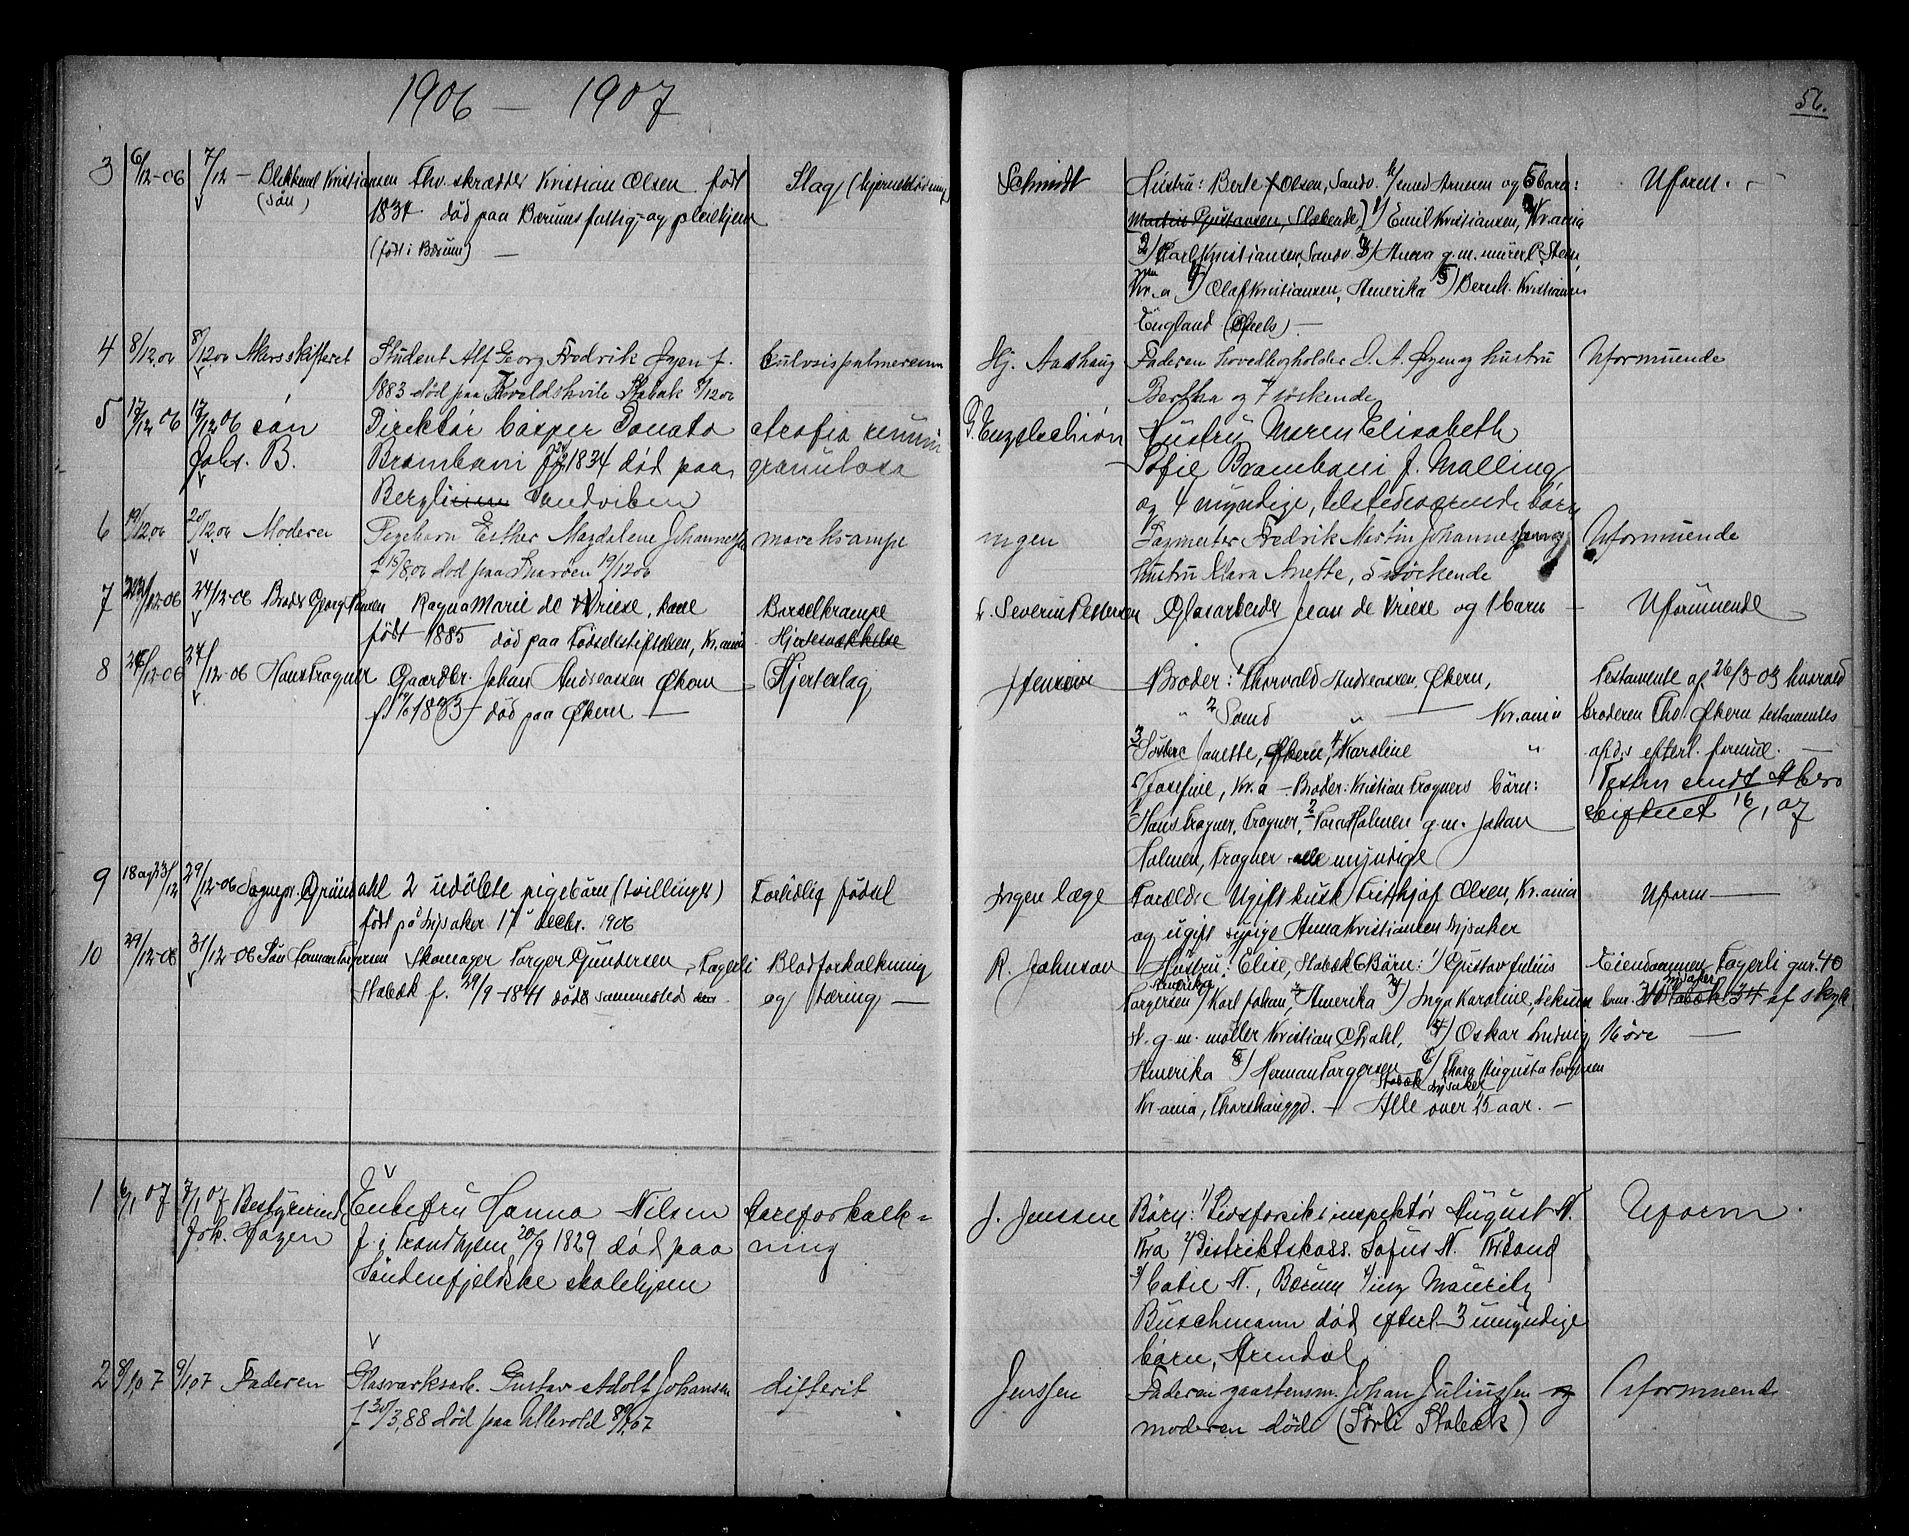 1906 — 1907
56.
3 6/12-06 7/12 — Blikkensl Kristiansen (sön)
Fhv. skrædder Kristian Olsen født
1834 død paa Bærums fattig- og pleiehjem
(født i Bærum) —
Slag (hjerneblødning)
Schmidt
Hustru: Berte Olsen, Sandv. og 5 barn:
Martin Gustavsen, Slæbende) 1/ Emil Kristiansen, Kr.ania
2) Karl Kristiansen, Sandv 3/ Anna g.m. murer
Kr.a 4) Olaf Kristiansen, Amerika 5) Bernh. Kristiansen
England —
Uform. —
4 8/12 06 8/12 06 Akers skifteret
Student Alf Georg Fredrik Øyen f.
1883 død paa Kveldshvile Stabæk 8/12 06
Hj. Aashaug
Faderen Hovedbogholder O. A. Øyen og hustru
Bertha og 7 søskende
Uformuende
5 17/12 06 17/12 06 sön
Johs. B.
Direktör Casper Donato
Brambani 1834 død paa
Bergli Sandviken
atrofia renum
granulosa
G. Engelschiön
Hustru Maren Elisabeth
Sofie Brambani f. Malling
og 4 myndige, tilstedeværende børn
6 19/12 06 20/12 06 Moderen
Pigebarn Esther Magdalene Johannessen
f. 15/8 06 død paa Snarøen 19/12 06
mavekrampe
ingen
Fredrik Martin Johannessen og
hustru Klara Anette, 5 søskende
Uformuende
7 /12-06 24/12-06 Broder Georg Hansen
Ragna Marie de Vriese, kone
født 1885 død paa Fødselsstiftelsen, Kr.ania
Barselkrampe
Hjertesvækkelse
Severin Petersen
Glasarbeider Jean de Vriese og 1 barn —
Uformuende
8 /12-06 27/12-06 Hans Frogner
Gaardbr. Johan Andreassen Økern
f. 1833 død paa Økern —
Hjerteslag
Jensen
Brødre: 1 Thorvald Andreassen, Økern,
" 2 Samd " — Kr.ania
3 Søstre Janette, Økern, 4 Karoline "
5 Josefine, Kr.a — Broder: Kristian Frogners børn:
1 Hans Frogner, Frogner, 2 Holmen g.m. Johan
Holmen, Frogner alle myndige
Testamente af 26/3-03 hvorved
broderen Tho. Økern testamentes
afd.s efterl. formue. —
Testm sendt Akers
skifteret 16/1 07
9 18 og 23/12 29/12-06 Sognepr. Gröndahl
2 udøbte pigebörn (tvillinger)
født på Lysaker 17 decbr. 1906
For tidlig fødsel
Ingen læge
Forældre Ugift kusk Frithjof Olsen, Kr.ania
og ugift sypige Anna Kristiansen Lysaker
Uform —
10 29/12-06 31/12-06 Sön Herman Torgersen
Skomager Torger Gundersen, Fagerli
Stabæk f. 29/9-1841 død sammested
Blodforkalkning
og tæring —
R. Johnson
Hustru: Elise, Stabæk 6 Børn: 1) Gustav Julius
Torgersen Amerika 2) Karl Johan, Amerika 3) Inga Karoline,
g.m. møller Kristian Dahl, 4) Oskar Ludvig,
Amerika 5) Herman Torgersen Stabæk 6) Thora Augusta Torgersen
Kr.ania, Thorshauggd. — Lysaker Alle over 25 aar. —
Eiendommen Fagerli gnr. 40
bnr. Lysaker Stabæk 34 af skyld
16 øre —
1 6/1 07 7/1 07 Bestyrerinde
Frk. Hagen
Enkefru Hanna Nilsen
f. i Trondhjem 20/9 1829 død paa
Söndenfjeldske skolehjem
Aareforkalk-
ning
J. Jenssen
Börn: 1/ inspektör August N.
Kra 2/ Distriktskass. Sofus N. Kr.sand
3/ Catie N., Bærum 4/ ing Mauritz
Buschmann død efterl. 3 umyndige
börn, Arendal
Uform.
2 8/1 07 9/1 07 Faderen
Glasværksarb. Gustav Adolf Johansen
f. 30/3 88 død paa Ullevold 8/1 07
difterit
Jenssen
Faderen gaardsm. Johan Juliussen og
moderen død (Sörli Stabæk)
Uformuende